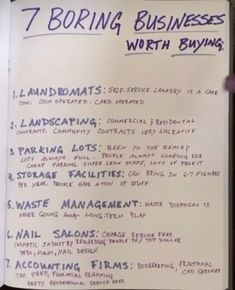 7 BORING BUSINESSES
WORTH BUYING
1. LAUNDROMATS: SELF-SERVICE LAUNDRY IS A CASH
COW. COIN OPERATED. CARD OPERATED
2. LANDSCAPING: COMMERCIAL & RESIDENTIAL
CONTRACTS. COMMUNITY CONTRACTS VERY LUCRATIVE
3. PARKING LOTS: BEEN TO THE BEACH?
LOTS ALWAYS FULL. PEOPLE ALWAYS LOOKING FOR
CHEAP PARKING. SUPER LEAN STAFF, LOTS OF PROFIT
4. STORAGE FACILITIES: CAN BRING IN 6-7 FIGURES
PER YEAR. PEOPLE HAVE A TON OF STUFF
5. WASTE MANAGEMENT: WASTE DISPOSAL IS
NEVER GOING AWAY. LONG-TERM PLAY
6. NAIL SALONS: CHARGE SERVICE FEES.
COSMETIC INDUSTRY PEOPLE PAY TOP DOLLAR
PEDI, MANI, NAIL DESIGN
7. ACCOUNTING FIRMS: BOOKKEEPING, FRACTIONAL
TAX PREP, FINANCIAL PLANNING CFO SERVICES
PROFESSIONAL SERVICE FEES